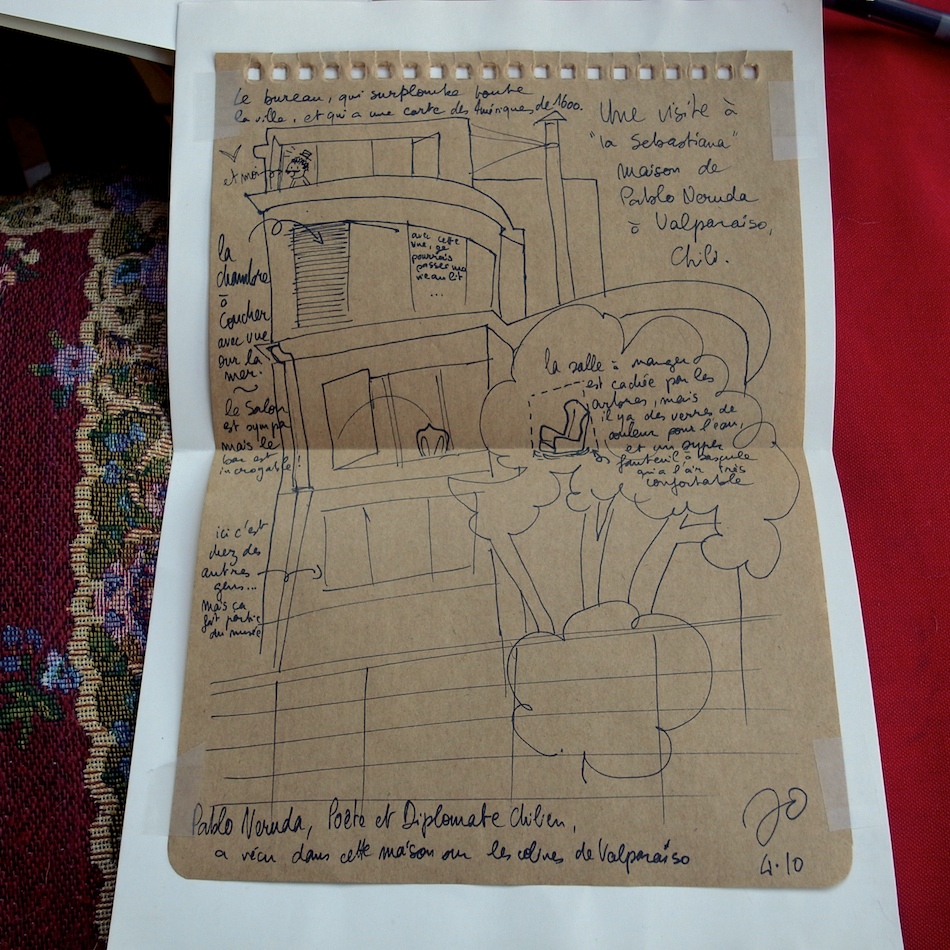 Le bureau, qui surplombe toute
la ville, et qui a une carte des Amériques de 1600.
Une visite à
"la Sebastiana"
maison de
Pablo Neruda
à Valparaiso,
Chili.
et moi
la
chambre
à
coucher
avec vue
sur la
mer.
avec cette
vue, je
pourrais
passer ma
vie au lit
...
le salon
est sympa
mais le
bar est
incroyable!
la salle à manger
est cachée par les
arbres, mais
il y a des verres de
couleur pour l'eau,
et un super
fauteuil à bascule
qui a l'air très
confortable
ici c'est
chez des
autres
gens...
mais ça
fait partie
du musée
Pablo Neruda, Poète et Diplomate Chilien,
a vécu dans cette maison sur les colines de Valparaiso
JO
4.10